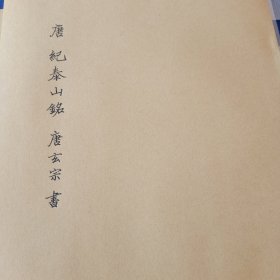 唐 紀泰山銘 唐玄宗 書